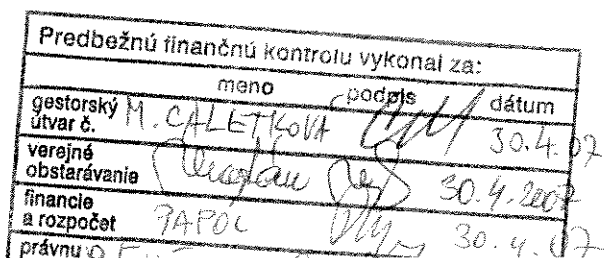 Predbežnú finančnú kontrolu vykonal za:
meno podpis dátum
gestorský útvar č. M. CALETKOVÁ 30.4.07
verejné obstarávanie 30.4.2007
financie a rozpočet PAPOL 30.4.07
právnu